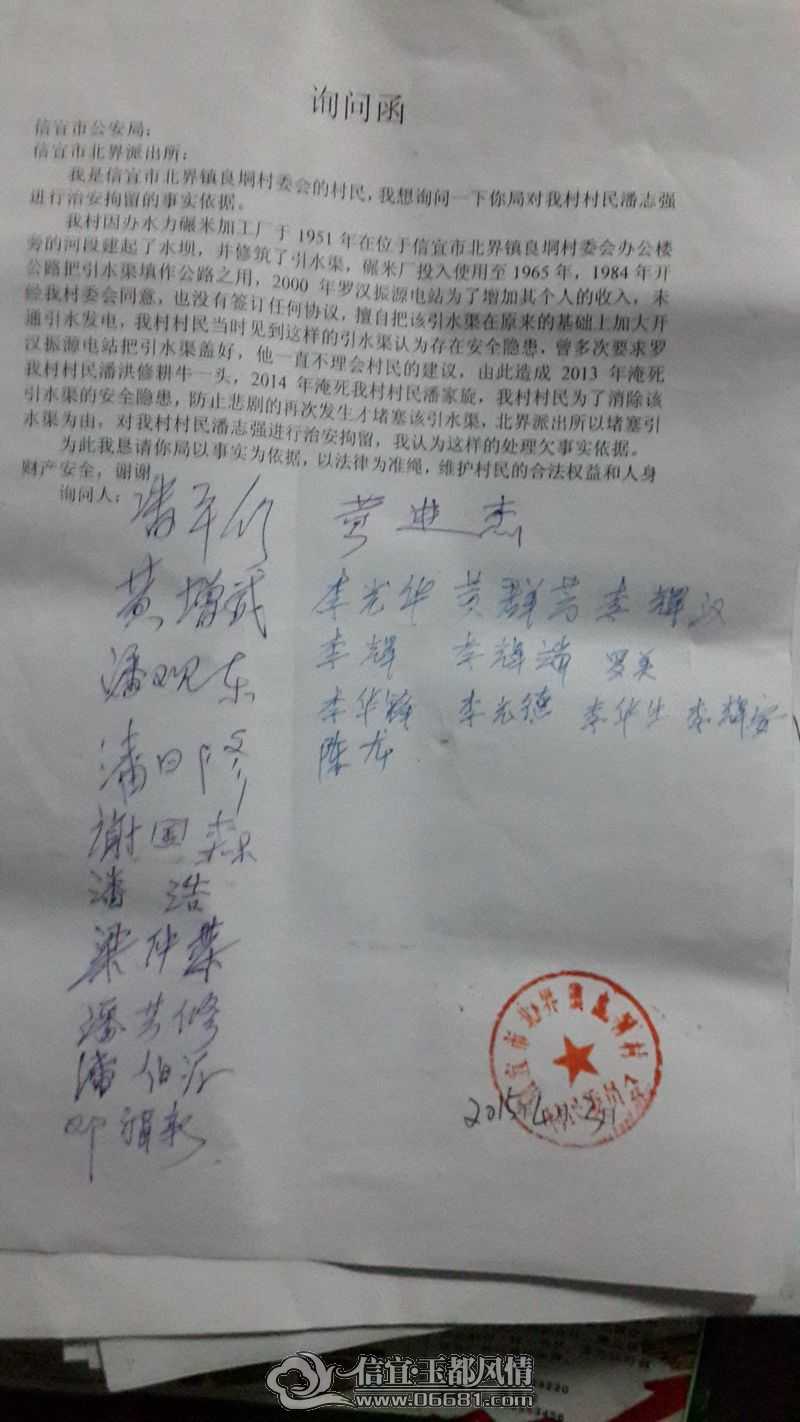 询问函
信宜市公安局：
信宜市北界派出所：
我是信宜市北界镇良垌村委会的村民，我想询问一下你局对我村村民潘志强
进行治安拘留的事实依据。
我村因办水力碾米加工厂于1951年在位于信宜市北界镇良垌村委会办公楼
旁的河段建起了水坝，并修筑了引水渠，碾米厂投入使用至1965年，1984年开
公路把引水渠填作公路之用，2000年罗汉振源电站为了增加其个人的收入，未
经我村委会同意，也没有签订任何协议，擅自把该引水渠在原来的基础上加大开
通引水发电，我村村民当时见到这样的引水渠认为存在安全隐患，曾多次要求罗
汉振源电站把引水渠盖好，他一直不理会村民的建议，由此造成2013年淹死
我村村民潘洪修耕牛一头，2014年淹死我村村民潘家旋，我村民为了消除该
引水渠的安全隐患，防止悲剧的再次发生才堵塞该引水渠，北界派出所以堵塞引
水渠为由，对我村村民潘志强进行治安拘留，我认为这样的处理欠事实依据。
为此我恳请你局以事实为依据，以法律为准绳，维护村民的合法权益和人身
财产安全，谢谢
询问人：
黄进杰
黄增武 李光华 黄群芳 李辉汉
潘观东 李辉 李辉瑞 罗英
李光德 李华生 李辉安
潘日修 陈龙
谢国森
潘浩
梁仲荣
潘芳修
潘伯
邓
信宜市北界镇良垌村
村民委员会
2015.4
信宜·玉都风情
www.06681.com